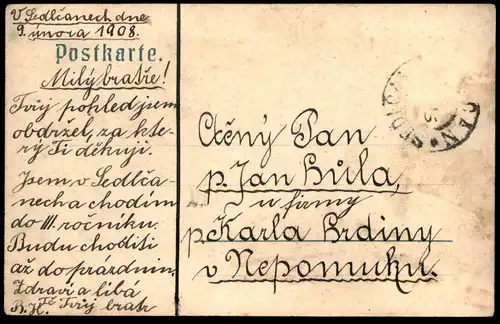 V Sedlčanech dne
9. února 1908.
Postkarte.
Milý bratře!
Tvůj pohled jsem
obdržel, za kte-
rý Ti děkuji.
Jsem v Sedlča-
nech a chodím
do III. ročníku.
Budu choditi
až do prázdnin.
Zdraví a líbá
Tě Tvůj bratr
B. H.
Ctěný Pan
p. Jan Hůla,
u firmy
p. Karla Brdiny
v Nepomuku.